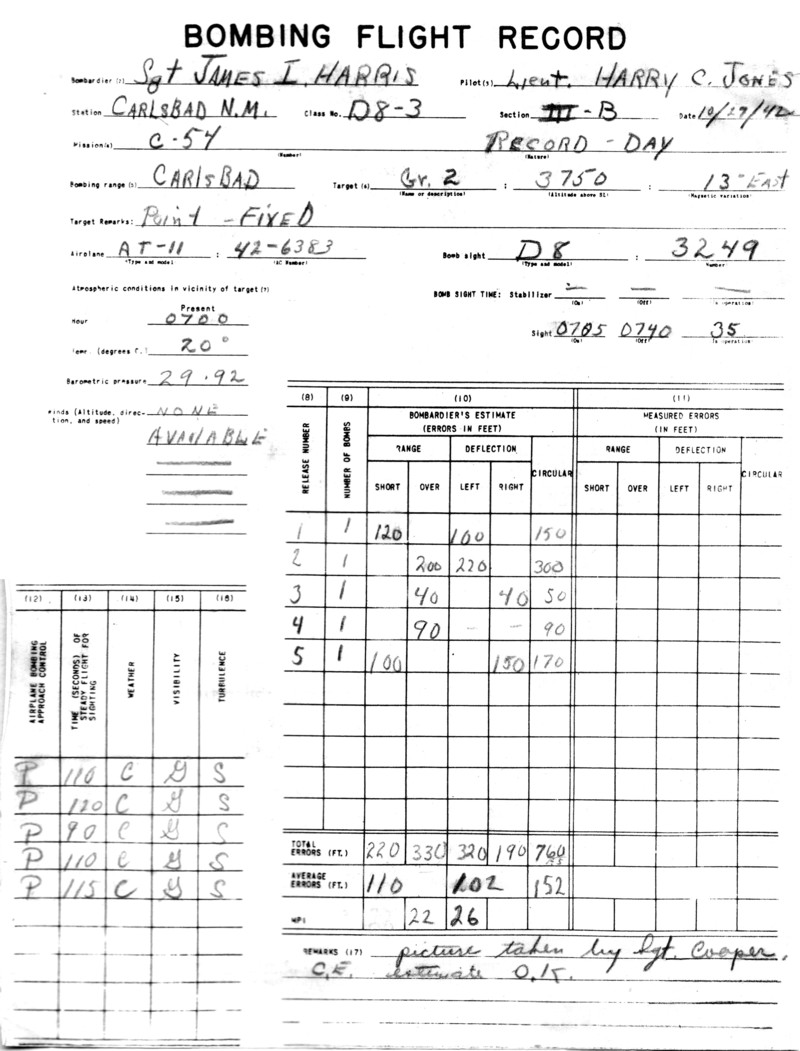 BOMBING FLIGHT RECORD
Bombardier(s) Sgt JAMES I. HARRIS Pilot(s) Lieut. HARRY C. JONES
Station CARLSBAD N.M. Class No. D8-3 Section III-B Date 10/27/42
Mission(s) C-54 RECORD - DAY
(Number) (Nature)
Bombing range(s) CARLSBAD Target(s) Gr. 2 : 3750 : 13° EAST
(Name or description) (Altitude above SL) (Magnetic variation)
Target Remarks: Point - FIXED
Airplane AT-11 : 42-6383 Bomb sight D8 : 3249
(Type and model) (AC Number) (Type and model) Number
Atmospheric conditions in vicinity of target(7) BOMB SIGHT TIME: Stabilizer — — —
(On) (Off) (In operation)
Present
Hour 0700
Sight 0705 0740 35
(On) (Off) (In operation)
Temp. (degrees C.) 20°
Barometric pressure 29.92
Winds (Altitude, direction, and speed) NONE
AVAILABLE
(8) (9) (10) (11)
RELEASE NUMBER NUMBER OF BOMBS BOMBARDIER'S ESTIMATE (ERRORS IN FEET) MEASURED ERRORS (IN FEET)
RANGE DEFLECTION CIRCULAR RANGE DEFLECTION CIRCULAR
SHORT OVER LEFT RIGHT SHORT OVER LEFT RIGHT
1 1 120 100 150
2 1 200 220 300
3 1 40 40 50
4 1 90 - - 90
5 1 100 150 170
TOTAL ERRORS (FT.) 220 330 320 190 760
AVERAGE ERRORS (FT.) 110 102 152
MPI 22 26
REMARKS (17) picture taken by Sgt. Cooper.
C.E. estimate O.K.
(12) (13) (14) (15) (16)
AIRPLANE BOMBING APPROACH CONTROL TIME (SECONDS) OF STEADY FLIGHT FOR SIGHTING WEATHER VISIBILITY TURBULENCE
P 110 C G S
P 120 C G S
P 90 C G S
P 110 C G S
P 115 C G S